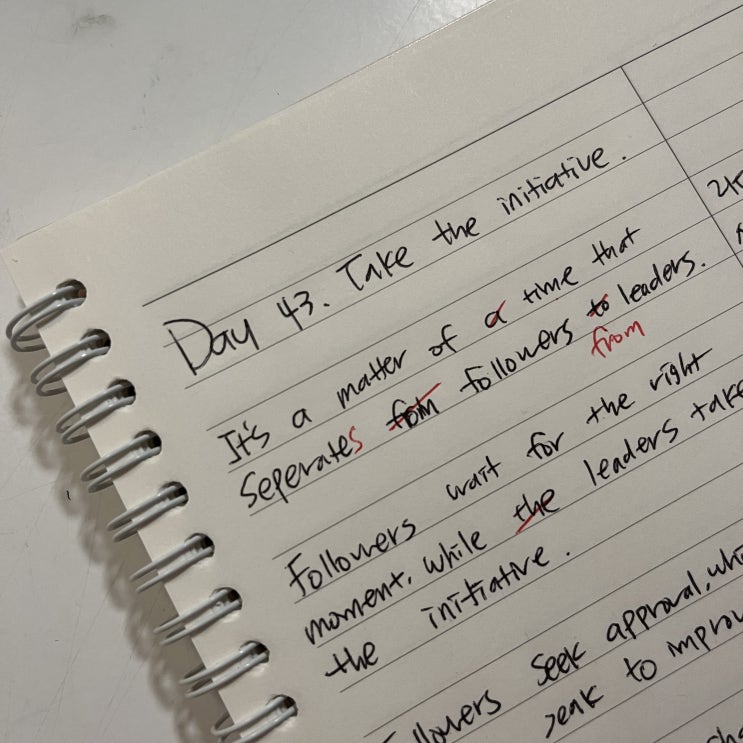 Day 43. Take the initiative.
It's a matter of a time that
Seperates from followers to leaders.
from
Followers wait for the right
moment, while the leaders take
the initiative.
seek approval, whi
to improv